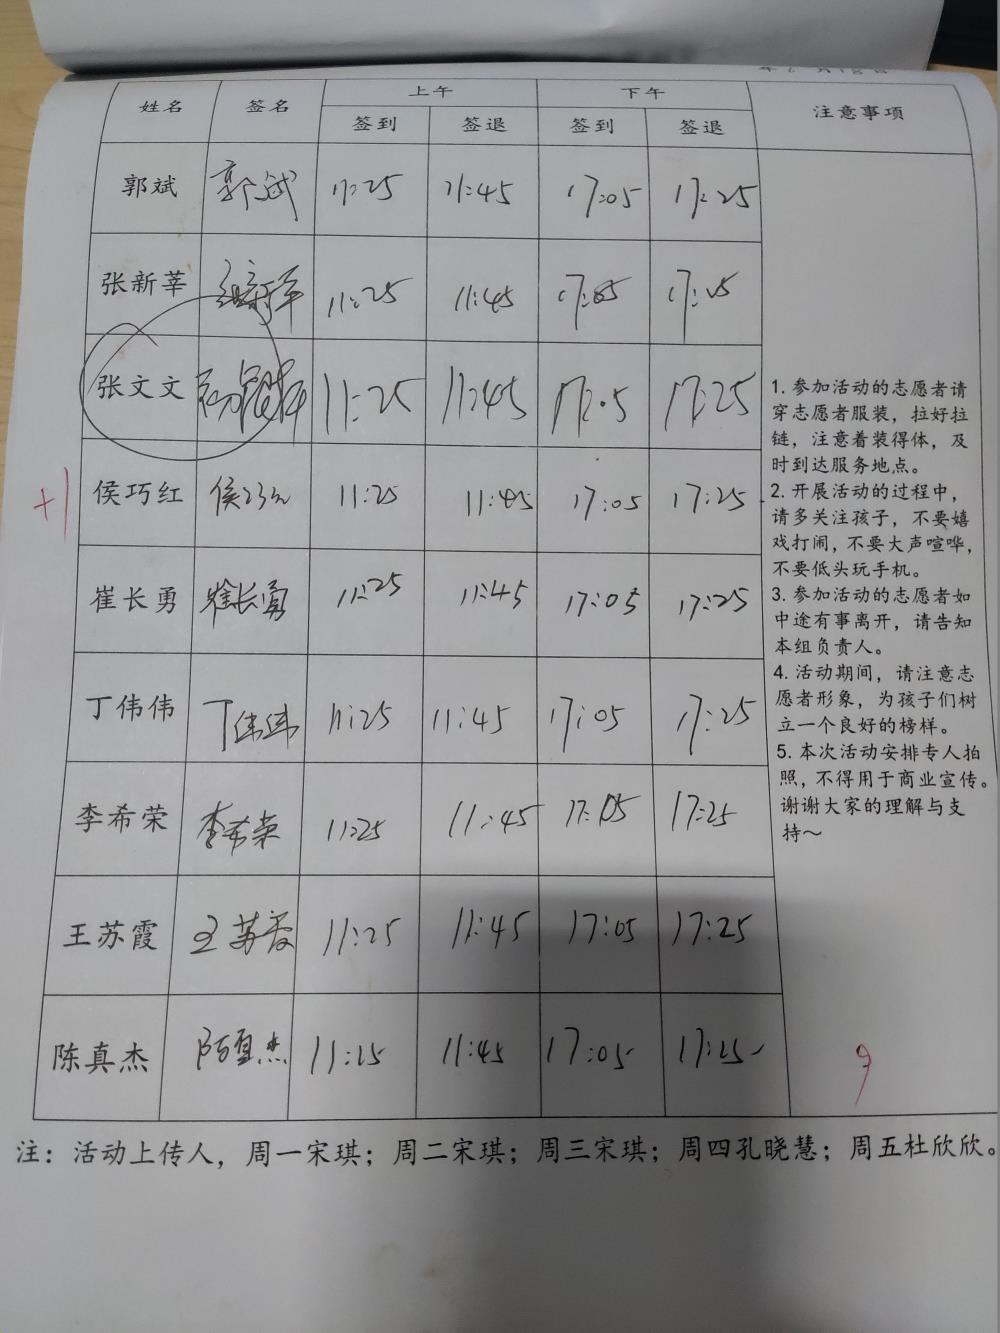 姓名 签名 上午 下午 注意事项
签到 签退 签到 签退
郭斌 郭斌 11:25 11:45 17:05 17:25
张新莘 张新莘 11:25 11:45 17:05 17:25
张文文 11:25 11:45 17:05 17:25
侯巧红 侯巧红 11:25 11:45 17:05 17:25
+1
崔长勇 崔长勇 11:25 11:45 17:05 17:25
丁伟伟 丁伟伟 11:25 11:45 17:05 17:25
李希荣 李希荣 11:25 11:45 17:05 17:25
王苏霞 王苏霞 11:25 11:45 17:05 17:25
陈真杰 陈真杰 11:25 11:45 17:05 17:25
1. 参加活动的志愿者请
穿志愿者服装，拉好拉
链，注意着装得体，及
时到达服务地点。
2. 开展活动的过程中，
请多关注孩子，不要嬉
戏打闹，不要大声喧哗，
不要低头玩手机。
3. 参加活动的志愿者如
中途有事离开，请告知
本组负责人。
4. 活动期间，请注意志
愿者形象，为孩子们树
立一个良好的榜样。
5. 本次活动安排专人拍
照，不得用于商业宣传。
谢谢大家的理解与支
持～
9
注：活动上传人，周一宋琪；周二宋琪；周三宋琪；周四孔晓慧；周五杜欣欣。